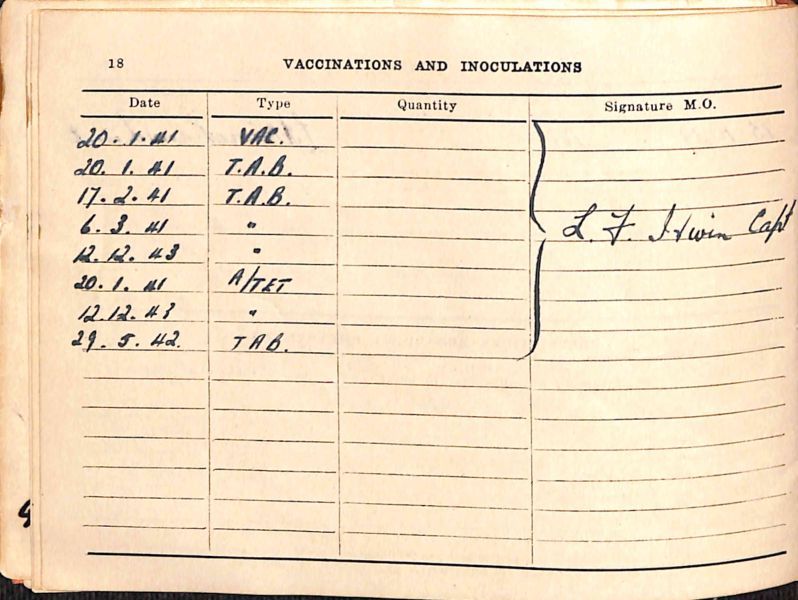 18 VACCINATIONS AND INOCULATIONS
Date Type Quantity Signature M.O.
20. 1. 41 VAC.
20. 1. 41 T.A.B.
17. 2. 41 T.A.B.
6. 3. 41 "
L. F. Irwin Capt
12. 12. 43 "
20. 1. 41 A/TET
12. 12. 43 "
29. 5. 42. TAB.